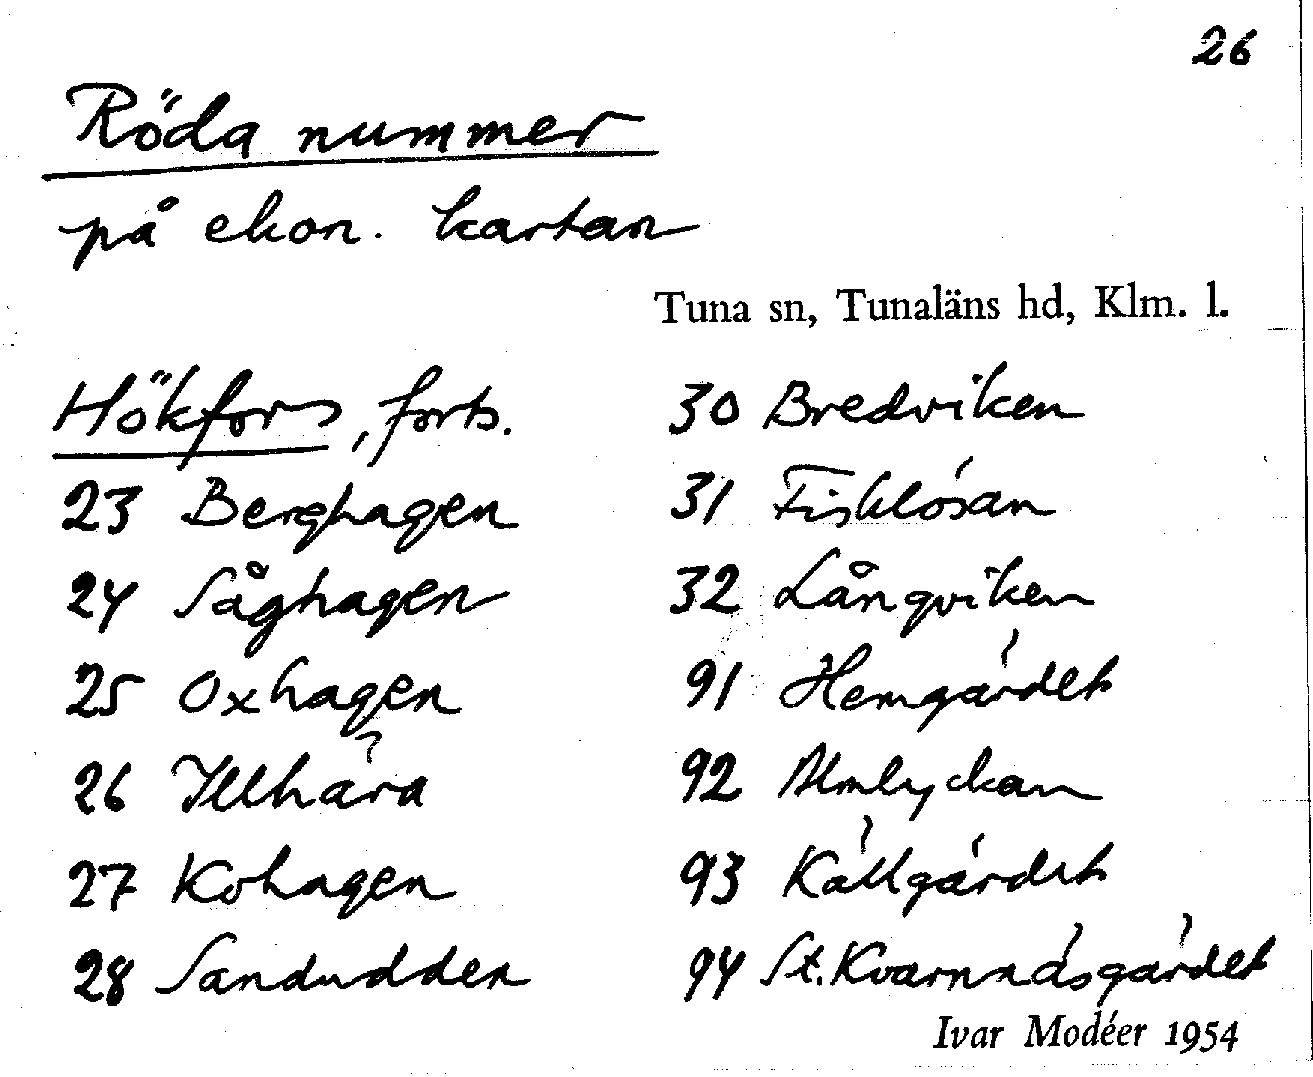 26
Röda nummer
på ekon. kartan
Tuna sn, Tunaläns hd, Klm. l.
Hökfors, forts.
23 Berghagen
24 Såghagen
25 Oxhagen
26 Illhära
27 Kohagen
28 Sandudden
30 Bredviken
31 Fisklösan
32 Långviken
91 Hemgärdet
92 Almlyckan
93 Källgärdet
94 St. Kvarnnäsgärdet
Ivar Modéer 1954